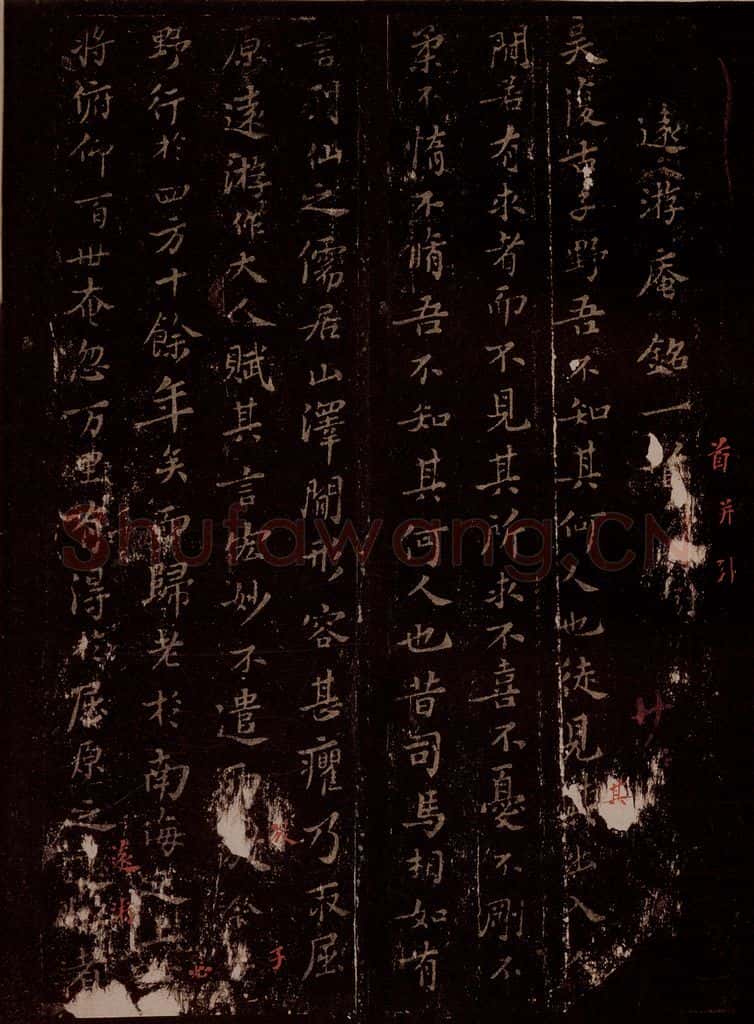 遠游庵銘一首
吴復古子野吾不知其何人也徒見出入人
間若有求者而不見其所求不喜不憂不剛不
柔不惰不脩吾不知其何人也昔司馬相如有
言列仙之儒居山澤間形容甚癯乃取屈
原遠游作大人賦其言宏妙不遣而今
野行於四方十餘年矣而歸老於南海之上
將俯仰百世奄忽万里有得於屈原之者
首并引
其
放
子
必
遠游
Shufawang.CN